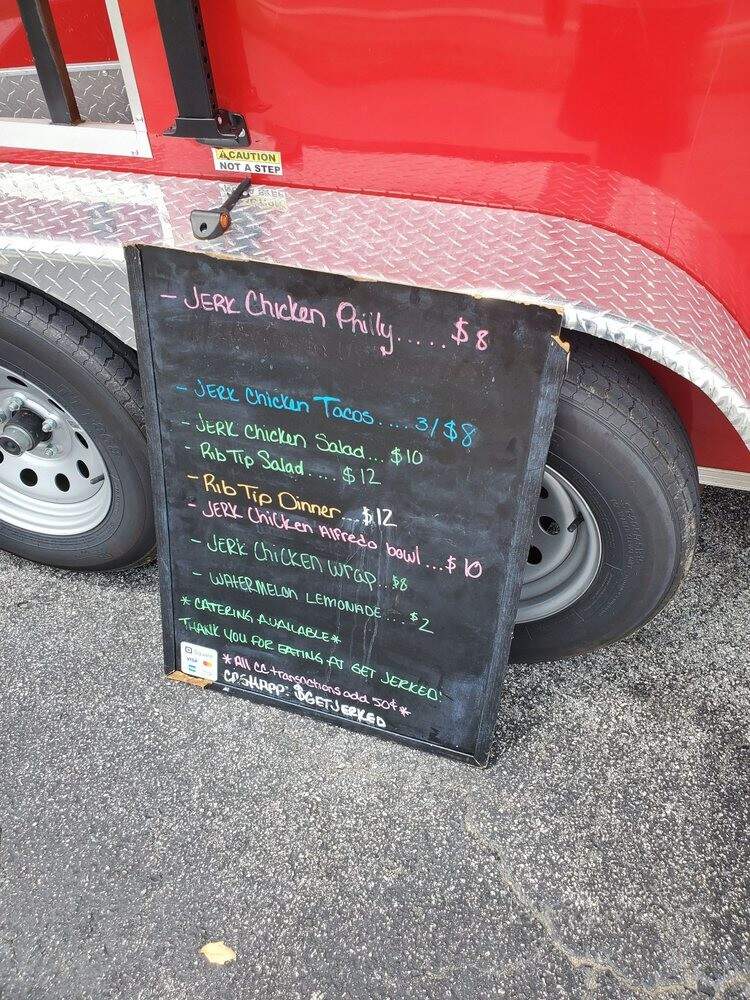 CAUTION
NOT A STEP
- JERK Chicken Philly..... $8
- JERK Chicken Tacos.... 3/$8
- JERK Chicken Salad... $10
- Rib Tip Salad..... $12
- Rib Tip Dinner... $12
- JERK Chicken Alfredo bowl ...$10
- JERK Chicken Wrap...$8
- WATERMELON LEMONADE...$2
* CATERING AVAILABLE*
THANK YOU FOR EATING AT GET JERKED!
Square
VISA
* All CC transactions add 50¢ *
CASHAPP: $GETJERKED